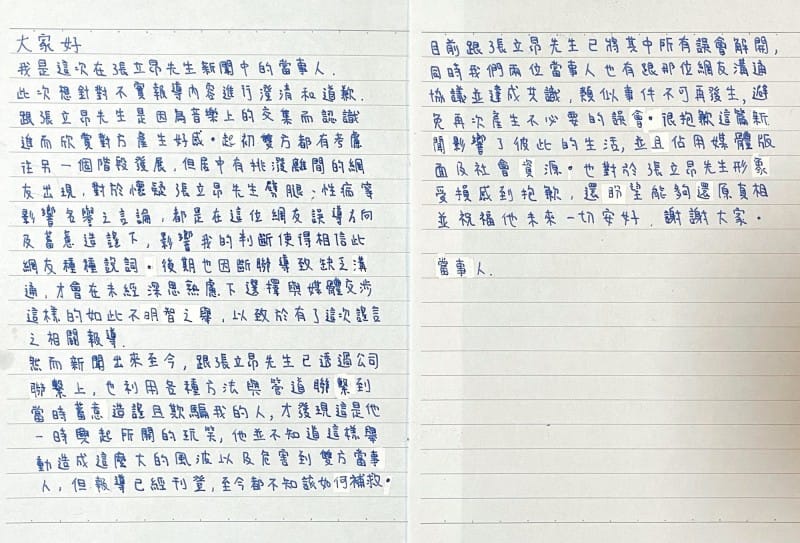 大家好
我是這次在張立昂先生新聞中的當事人.
此次想針對不實報導內容進行澄清和道歉.
跟張立昂先生是因為音樂上的交集而認識
進而欣賞對方產生好感。起初雙方都有考慮
往另一個階段發展,但居中有挑潑離間的網
友出現,對於懷疑張立昂先生劈腿;性病等
影響名譽之言論,都是在這位網友誤導方向
及蓄意造謊下,影響我的判斷使得相信此
網友種種說詞。後期也因斷聯導致缺乏溝
通,才會在未經深思熟慮下選擇與媒體交涉
這樣的如此不明智之舉,以致於有了這次謊言
之相關報導.
然而新聞出來至今,跟張立昂先生已透過公司
聯繫上,也利用各種方法與管道聯繫到
當時蓄意造謊且欺騙我的人,才發現這是他
一時興起所開的玩笑,他並不知道這樣舉
動造成這麼大的風波以及危害到雙方當事
人,但報導已經刊登,至今都不知該如何補救。
目前跟張立昂先生已將其中所有誤會解開,
同時我們兩位當事人也有跟那位網友溝通
協議並達成共識,類似事件不可再發生,避
免再次產生不必要的誤會。很抱歉這篇新
聞影響了彼此的生活,並且佔用媒體版
面及社會資源。也對於張立昂先生形象
受損感到抱歉,還盼望能夠還原真相
並祝福他未來一切安好.謝謝大家。
當事人.